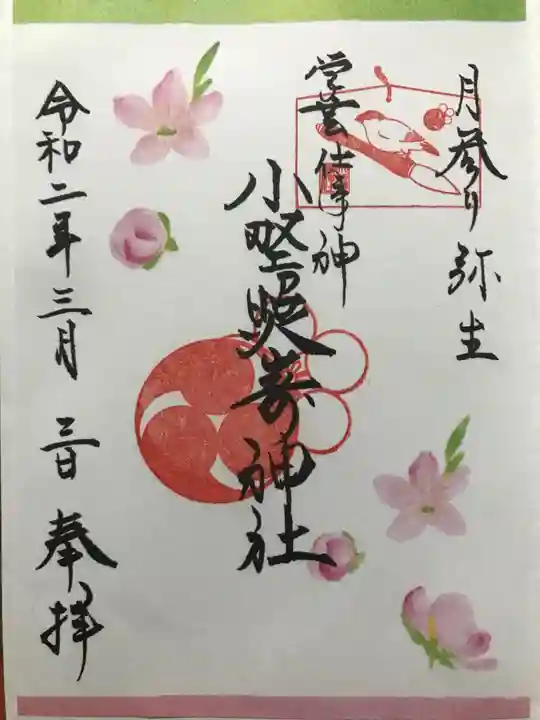 月参り 弥生
学芸神
小野照嵜神社
令和二年三月 三日 奉拝